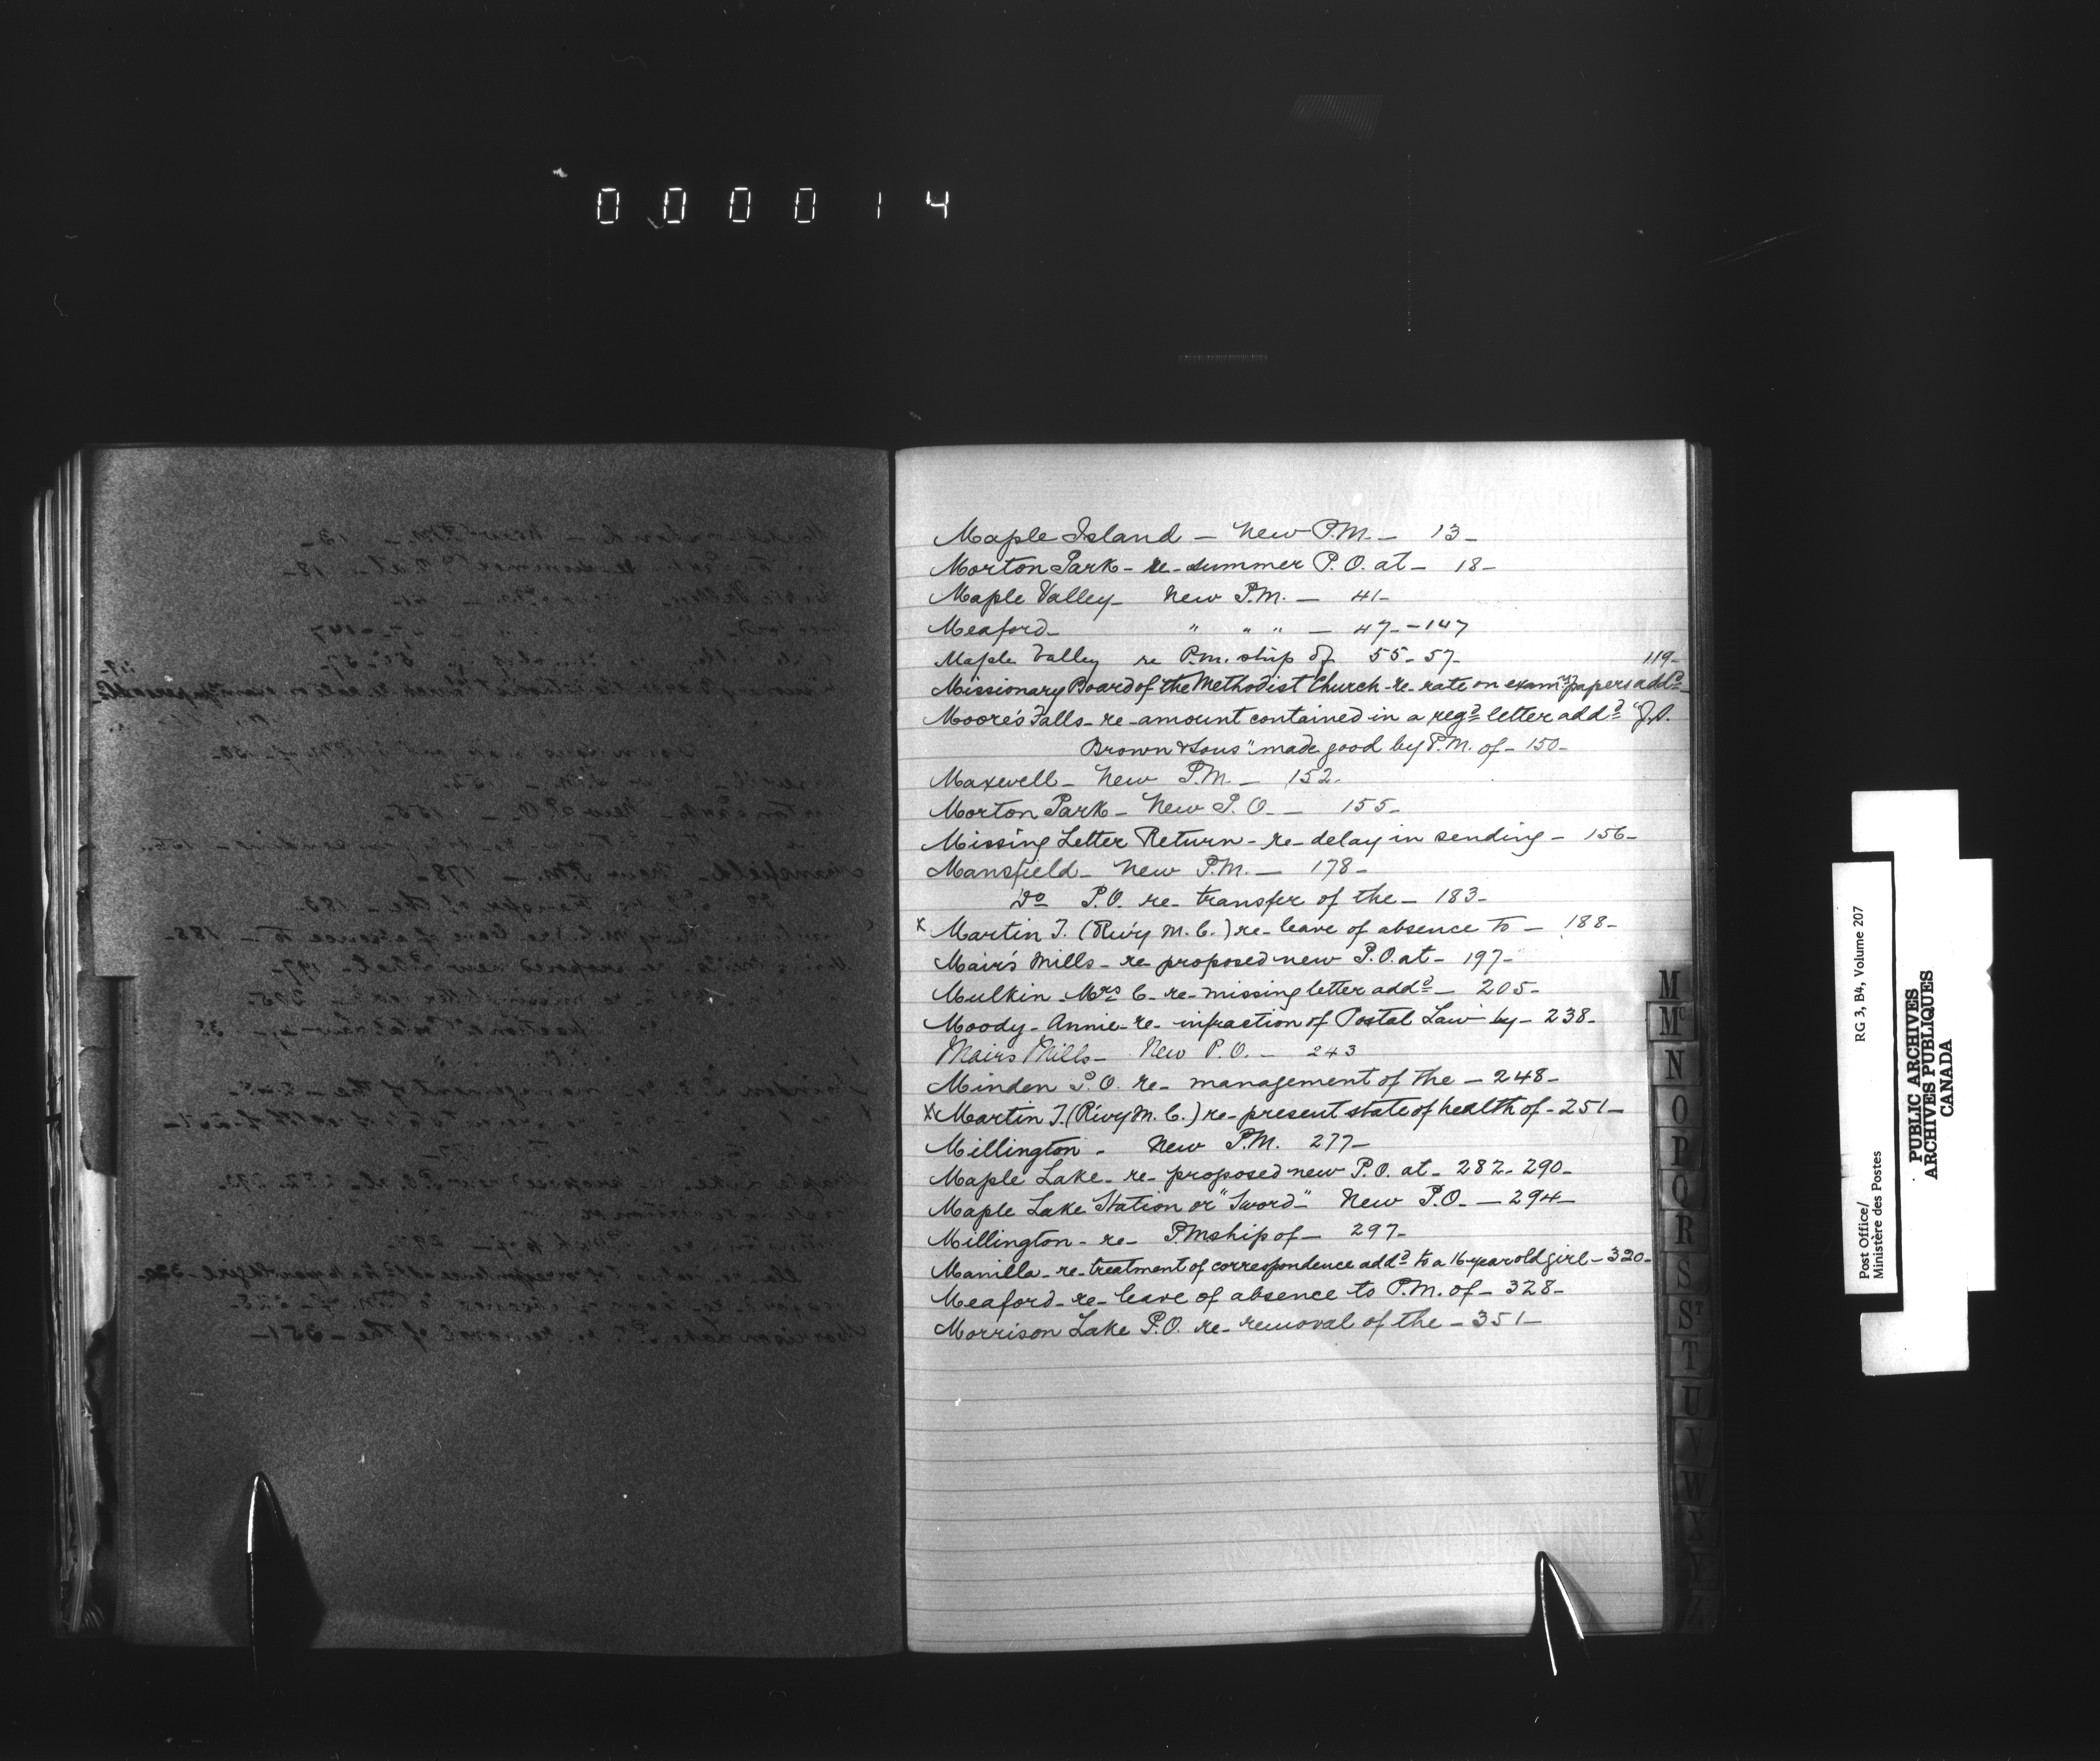 000014
Maple Island — New P.M. — 13 —
Morton Park — re — summer P.O. at — 18 —
Maple Valley — New P.M. — 41 —
Meaford — " " " — 47 — 147
Maple Valley re P.m. ship of 55 - 57 -
119 -
Missionary Board of the Methodist Church - re - rate on exam papers addd
Moore's Falls - re - amount contained in a regd letter addd "J.
Brown & Sons" made good by P.M. of - 150 -
Maxwell - New P.M. - 152 -
Morton Park - New P.O. - 155 -
Missing Letter Return - re - delay in sending - 156 -
Mansfield - New P.M. - 178 -
Do P.O. re - transfer of the - 183 -
x Martin T. (Ry M.C.) re - leave of absence to - 188 -
Mair's Mills - re proposed new P.O. at - 197 -
Mulkin - Mrs C - re - missing letter addd - 205 -
Moody - Annie - re - infraction of Postal Law by - 238 -
Mairs Mills - New P.O. - 243
Minden P.O. re - management of the - 248 -
x Martin T. (Ry M.C.) re - present state of health of - 251 -
Millington - New P.M. 277 -
Maple Lake - re - proposed new P.O. at - 282 - 290 -
Maple Lake Station or "Sword" New P.O. - 294 -
Millington - re - P.Mship of - 297 -
Manilla - re - treatment of correspondence addd to a 16-year old girl - 320 -
Meaford - re - leave of absence to P.M. of - 328 -
Morrison Lake P.O. re - removal of the - 351 -
M
Mc
N
O
P
Q
R
S
ST
T
U
V
W
X
Y
Z
Post Office/
Ministère des Postes
RG 3, B4, Volume 207
PUBLIC ARCHIVES
ARCHIVES PUBLIQUES
CANADA